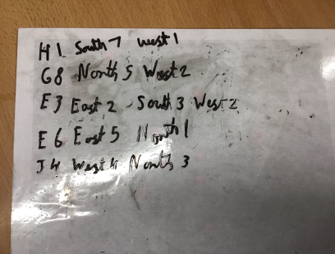 H1 South 7 West 1
G8 North 5 West 2
E3 East 2 South 3 West 2
E6 East 5 North 1
J4 West 4 North 3